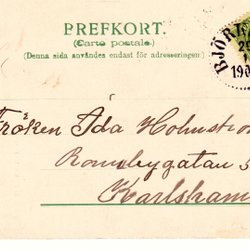 PREFKORT.
(Carte postale.)
(Denna sida användes endast för adresseringen.)
BJÖR
Fröken Ida Holmstro
gatan 5
Karlsham